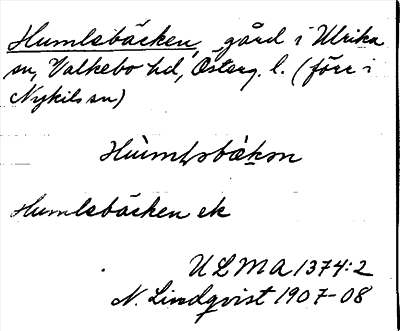 Humlebäcken, gård i Ulrika
sn, Valkebo hd, Österg. l. (förr i
Nykils sn)
Humlebäcken ek
ULMA 1374:2
N. Lindqvist 1907-08